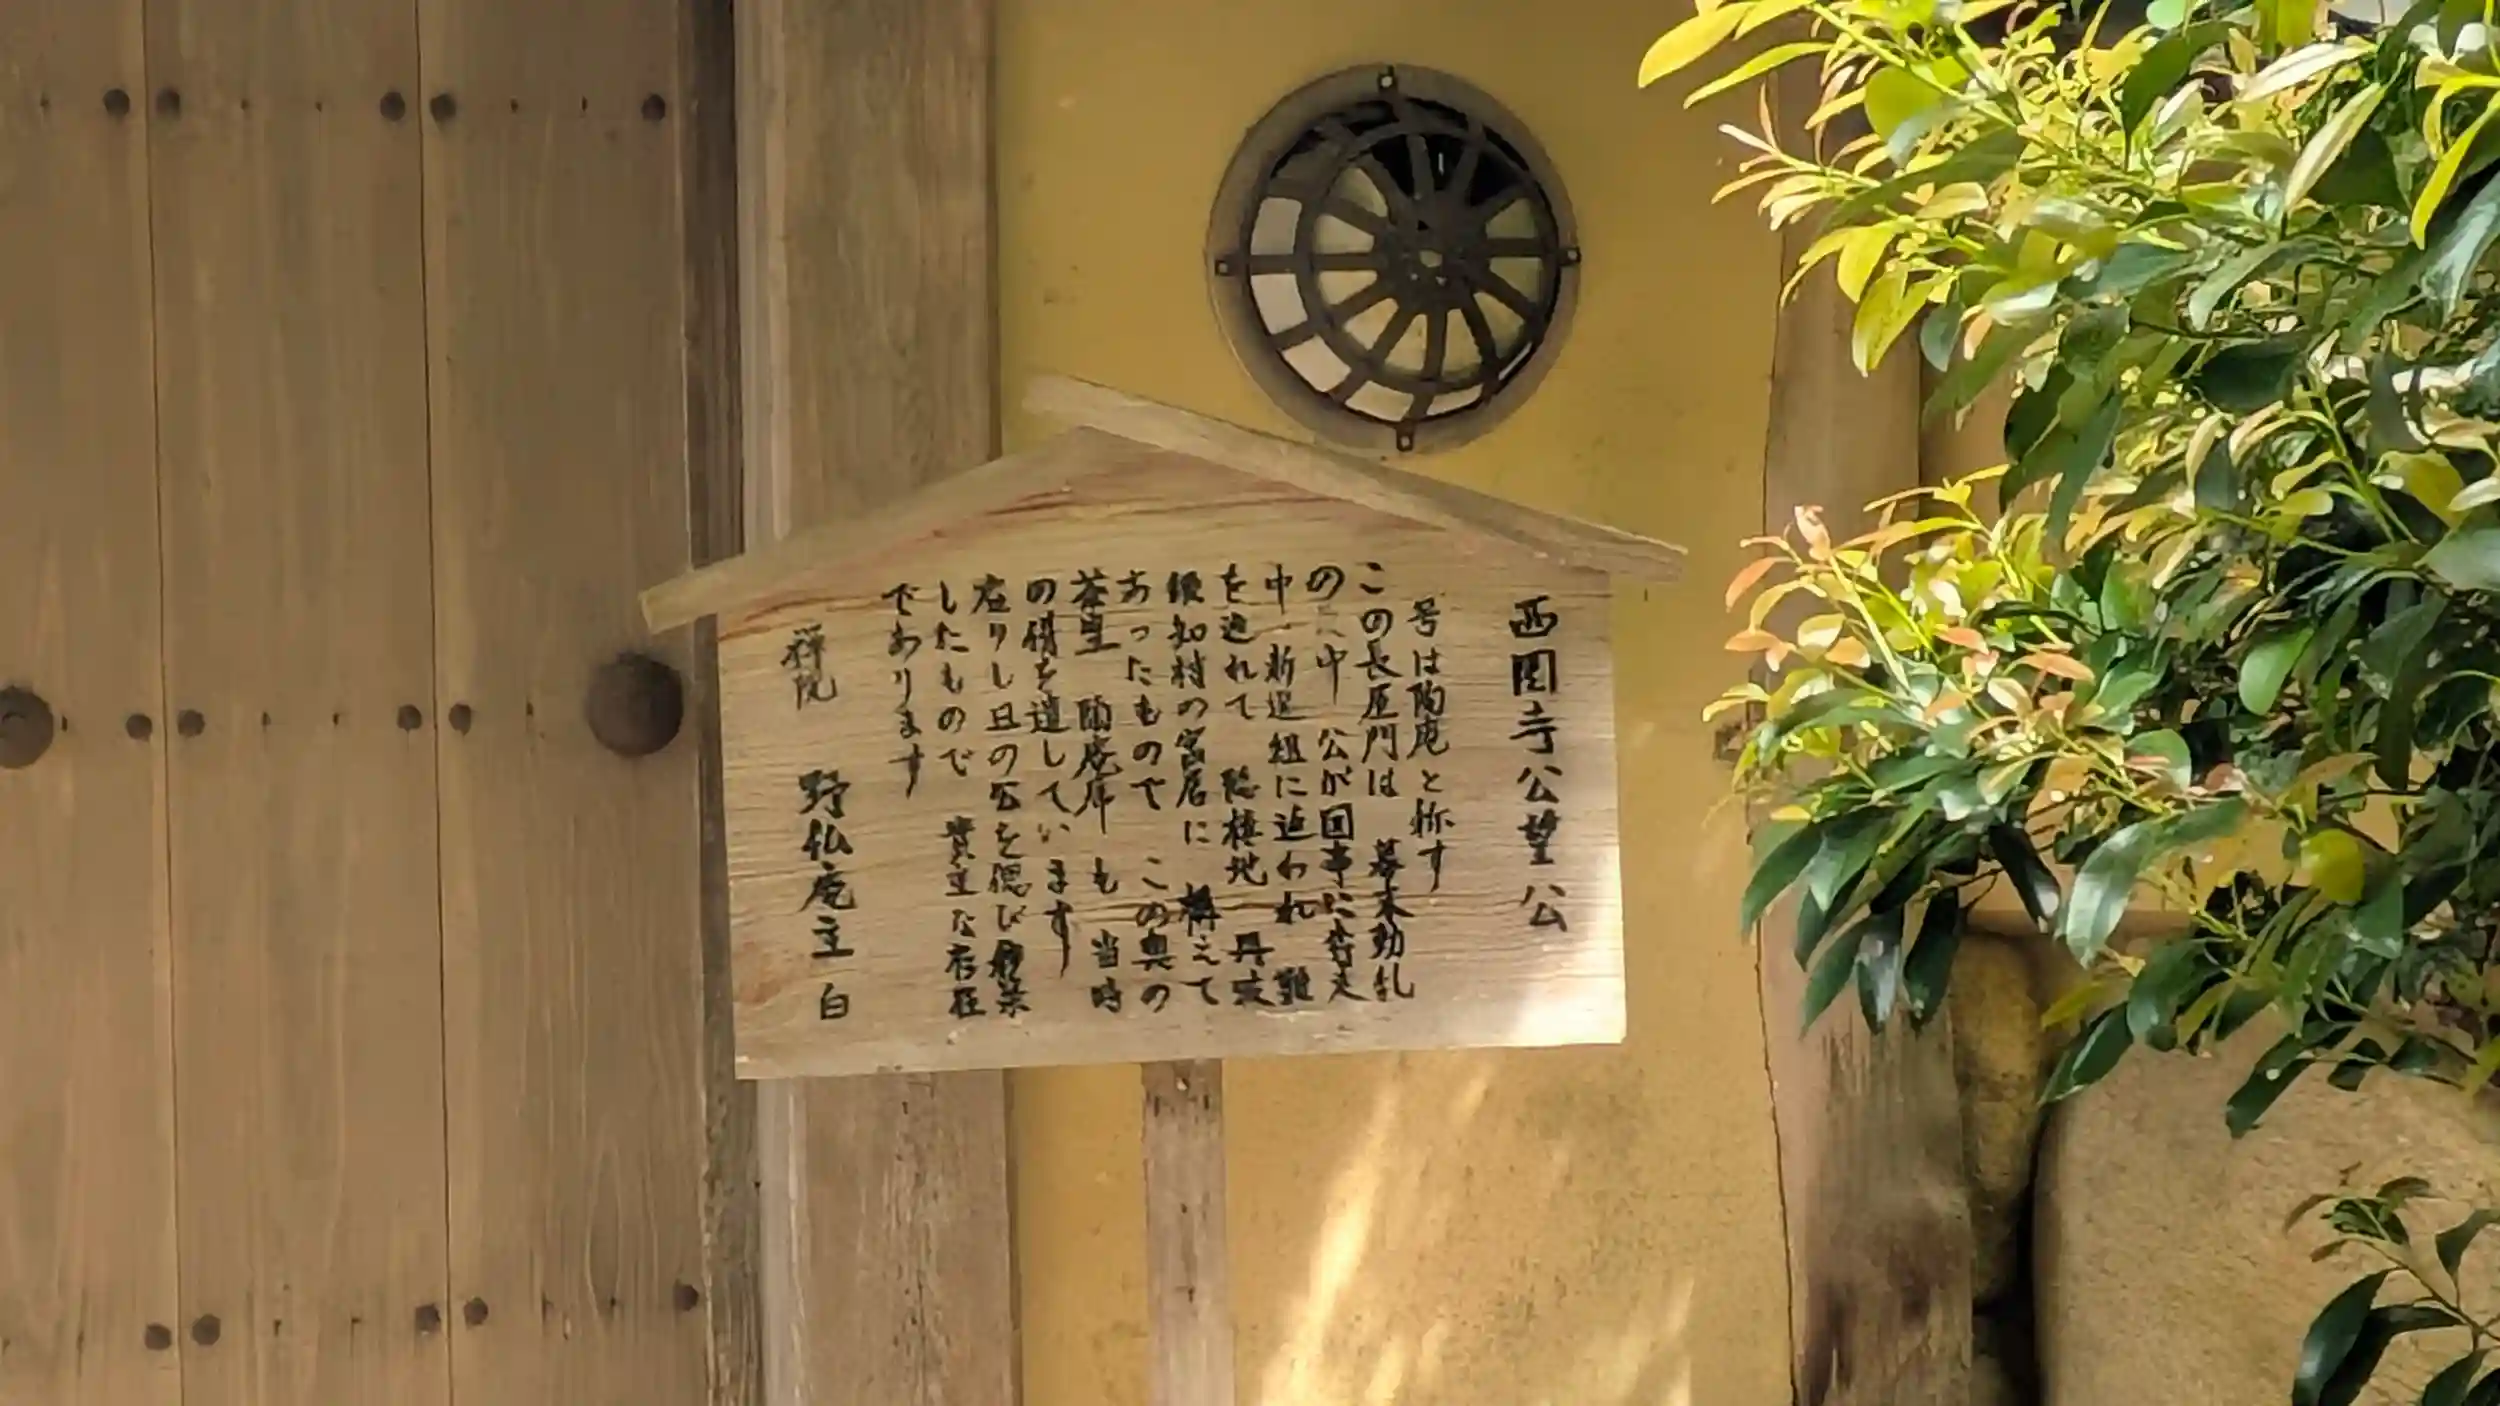 西園寺公望公
号は陶庵と称す
この長屋門は 幕末動乱
の 中 公が国事に奔走
中 新選組に追われ 難
を逃れて 隠棲地 丹波
須知村の宮居に 構えて
あったもので この奥の
茶室 陶庵席も 当時
の構を遺しています
在りし日の公を偲び移築
したもので 貴重な存在
であります
禅院 野仏庵主 白